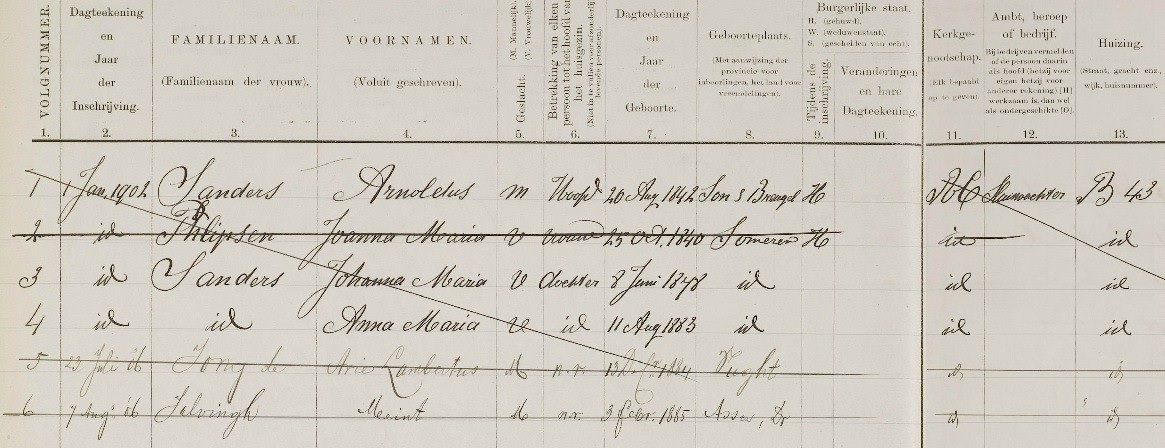 VOLGNUMMER.
Dagteekening en Jaar der Inschrijving.
FAMILIENAAM.
(Familienaam der vrouw).
VOORNAMEN.
(Voluit geschreven).
Geslacht. (M. Mannelijk). (V. Vrouwelijk).
Betrekking van elken persoon tot het hoofd van het huisgezin.
Dagteekening en Jaar der Geboorte.
Geboorteplaats.
(Met aanwijzing der provincie voor inboorlingen, het land voor vreemdelingen).
Burgerlijke staat.
H. (gehuwd).
W. (weduwenstaat).
S. (gescheiden van echt).
Tijdens de inschrijving.
Veranderingen en hare Dagteekening.
Kerkgenootschap.
(Elk bepaald op te geven).
Ambt, beroep of bedrijf.
Bij bedrijven vermelden of de persoon daarin als hoofd (hetzij voor eigen hetzij voor anderer rekening) [H] werkzaam is, dan wel als ondergeschikte [O].
Huizing.
(Straat, gracht enz., wijk, huisnummer).
1. 2. 3. 4. 5. 6. 7. 8. 9. 10. 11. 12. 13.
1 1 Jan. 1902 Sanders Arnoldus m Hoofd 20 Aug 1842 Son & Breugel H RC B 43
2 id Philipsen Joanna Maria v vrouw 25 Oct. 1840 Someren H id id
3 id Sanders Johanna Maria v dochter 8 Juni 1878 id id id
4 id id Anna Maria v id 11 Aug 1883 id id id
5 23 Juli 06 Jong de Arie Lambertus M n.r. 1884 Vught id id
6 7 Aug. 06 Meint M n.r. 3 febr. 1885 Assen, Dr id id